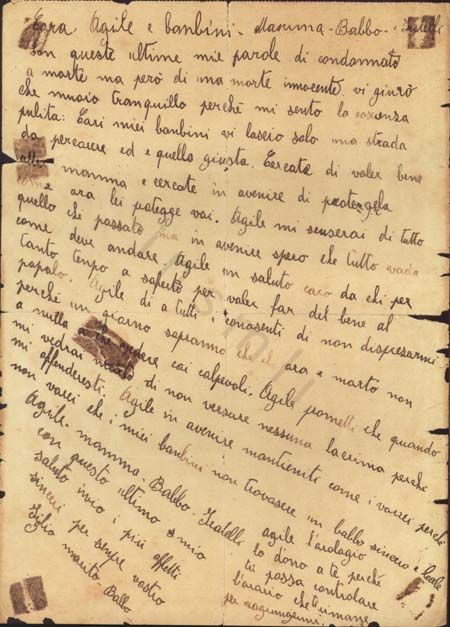 Cara Agile e banbini - Mamma - Babbo - Fratelli
Con queste ultime mie parole di condannato
a morte ma però di una morte innocente. vi giurò
che muoio tranquillo perché mi sento la coscenza
pulita: Cari miei banbini vi lascio solo una strada
da percorere ed e quella giusta. Cercate di valer bene
alla mamma e cercate in avenire di protengela
come ara lei protegge vai. Agile mi scuserai di tutto
quello che passato ma in avenire spero che tutto vada
come deve andare. Agile un saluto caro da chi per
tanto tenpo a saputo per valer far del bene al
papalo. Agile di a tutti i conosenti di non dispresarmi
perché un giorno sapranno che ara e marto non
a nulla a che vedere cai calpevoli. Agile prometti che quando
mi vedrai di non versare nessuna lacrima perché
mi offenderesti. Agile in avenire mantieniti come i varrei perché
non varrei che i miei banbini non trovasere un babbo sincero e leale
Agile. mamma. Babbo. Fratelli
con questo ultimo mio
saluto invio i più affetti
sinceri per senpre vostro
Figlio marito - Babbo
agile l'arologio
lo dono a te perché
tu possa controlare
l'arario che ti rimane
per ragiungermi.